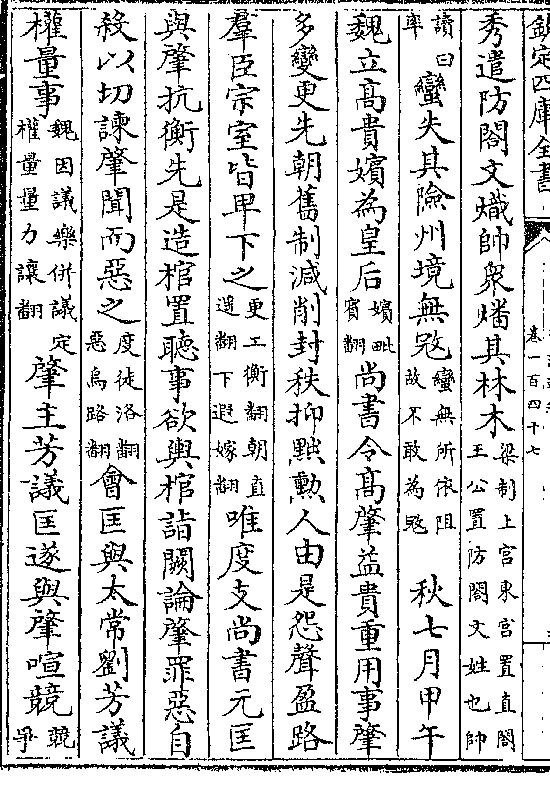 欽定四庫全書
卷一百四十七
秀遣防閤文熾帥衆燔其林木梁制上宮東宮置直閤王公置防閤文姓也帥
讀曰率蠻失其險州境無宼蠻無所依阻故不敢為宼　秋七月甲午
魏立髙貴嬪為皇后嬪毗賓翻尚書令髙肇益貴重用事肇
多變更先朝舊制減削封秩抑黜勲人由是怨聲盈路
羣臣宗室皆卑下之更工衡翻朝直遥翻下遐嫁翻唯度支尚書元匡
與肇抗衡先是造棺置聽事欲輿棺詣闕論肇罪惡自
殺以切諫肇聞而惡之度徒洛翻惡烏路翻會匡與太常劉芳議
權量事魏因議樂併議定權量量力讓翻肇主芳議匡遂與肇喧競競爭